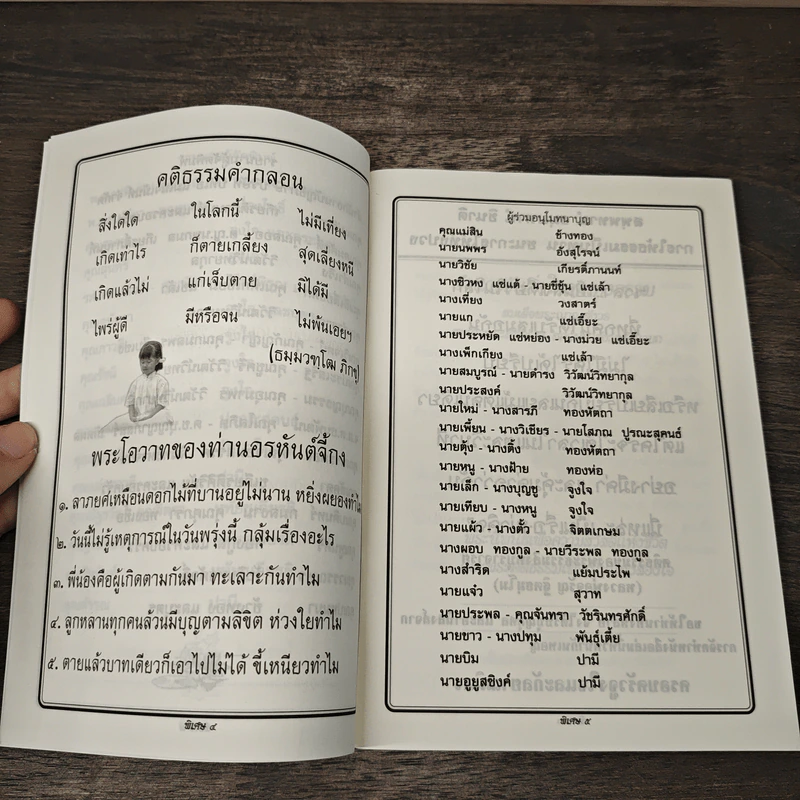 คติธรรมคำกลอน
สิ่งใดใด ในโลกนี้ ไม่มีเที่ยง
เกิดเท่าไร ก็ตายเกลี้ยง สุดเลี่ยงหนี
เกิดแล้วไม่ แก่เจ็บตาย มิได้มี
ไพร่ผู้ดี มีหรือจน ไม่พ้นเอยฯ
(ธมฺมวฑฺโฒ ภิกฺขุ)
พระโอวาทของท่านอรหันต์จี้กง
๑. ลาภยศเหมือนดอกไม้ที่บานอยู่ไม่นาน หยิ่งผยองทำไ
๒. วันนี้ไม่รู้เหตุการณ์ในวันพรุ่งนี้ กลุ้มเรื่องอะไร
๓. พี่น้องคือผู้เกิดตามกันมา ทะเลาะกันทำไม
๔. ลูกหลานทุกคนล้วนมีบุญตามลิขิต ห่วงใยทำไม
๕. ตายแล้วบาทเดียวก็เอาไปไม่ได้ ขี้เหนียวทำไม
พิเศษ ๔
ผู้ร่วมอนุโมทนาบุญ
คุณแม่สิน ช้างทอง
นายนพพร อังสุโรจน์
นายวิชัย เกียรติ์ภานนท์
นางชิวหง แซ่แต้ - นายขี่ซุ้น แซ่เล้า
นางเที่ยง วงสาตร์
นายแก แซ่เอี๊ยะ
นายประหยัด แซ่หย่อง - นางม่วย แซ่เอี๊ยะ
นางเพ็กเกียง แซ่เล้า
นายสมบูรณ์ - นายดำรง วิวัฒน์วิทยากุล
นายประสงค์ วิวัฒน์วิทยากุล
นายใหม่ - นางสารภี ทองหัตถา
นายเพี้ยน - นางวิเชียร - นายโสภณ ปูรณะสุคนธ์
นายตุ้ง - นางติ้ง ทองหัตถา
นายหนู - นางฝ้าย ทองห่อ
นายเล็ก - นางบุญชู จูงใจ
นายเทียบ - นางหนู จูงใจ
นายแผ้ว - นางตั้ว จิตตเกษม
นางผอบ ทองกูล - นายวีระพล ทองกูล
นางสำริด แย้มประไพ
นายแจ๋ว สุวาท
นายประพล - คุณจันทรา วัชรินทรศักดิ์
นายขาว - นางปทุม พันธุ์เตี้ย
นายบิม ปามี
นายอูยูสซิงค์ ปามี
พิเศษ ๕